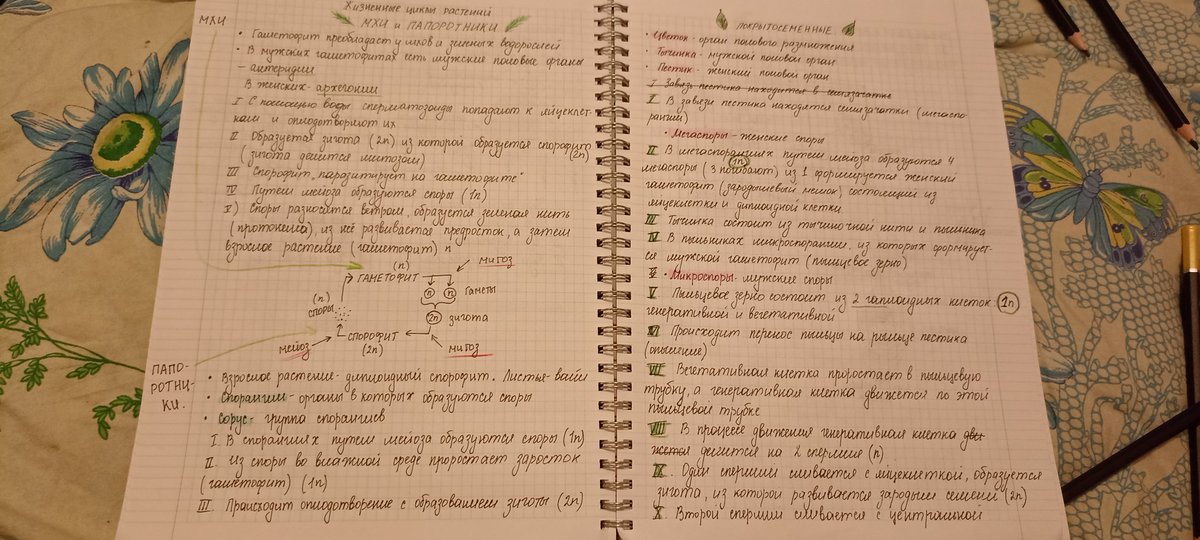 Жизненные циклы растений
МХИ и ПАПОРОТНИКИ
МХИ
• Гаметофит преобладает у мхов и зелёных водорослей
• В мужских гаметофитах есть мужские половые органы
– антеридии
В женских - архегонии
I С помощью воды сперматозоиды попадают к яйцеклет-
кам и оплодотворяют их
II Образуется зигота (2n) из которой образуется спорофит
(зигота делится митозом) (2n)
III Спорофит „паразитирует на гаметофите"
IV Путём мейоза образуются споры (1n)
V) Споры разносятся ветром, образуется зелёная нить
(протонема), из неё развивается предросток, а затем
взрослое растение (гаметофит) n
(n)
ГАМЕТОФИТ
митоз
n n гаметы
(n)
споры
2n зигота
СПОРОФИТ
(2n)
мейоз
митоз
ПАПО-
РОТНИ-
КИ.
• Взрослое растение - диплоидный спорофит. Листья - вайи
• Спорангии - органы в которых образуются споры
• Сорус - группа спорангиев
I. В спорангиях путём мейоза образуются споры (1n)
II. Из споры во влажной среде прорастает заросток
(гаметофит) (1n)
III. Происходит оплодотворение с образованием зиготы (2n)
ПОКРЫТОСЕМЕННЫЕ.
• Цветок - орган полового размножения
• Тычинка - мужской половой орган
• Пестик - женский половой орган
I Завязь пестика находится в семязачатке
I В завязи пестика находятся семязачатки (мегаспо-
рангии)
• Мегаспоры - женские споры
II В мегаспорангиях путём мейоза образуются 4
мегаспоры (3 погибают) 1n из 1 формируется женский
гаметофит (зародышевый мешок) состоящий из
яйцеклетки и диплоидной клетки
III Тычинка состоит из тычиночной нити и пыльника
IV В пыльниках микроспорангии, из которых формирует-
ся мужской гаметофит (пыльцевое зерно)
V • Микроспоры - мужские споры
V. Пыльцевое зерно состоит из 2 гаплоидных клеток: 1n
генеративной и вегетативной
VI Происходит перенос пыльцы на рыльце пестика
(опыление)
VII Вегетативная клетка прорастает в пыльцевую
трубку, а генеративная клетка движется по этой
пыльцевой трубке
VIII В процессе движения генеративная клетка дви
жется делится на 2 спермия (n)
IX. Один спермий сливается с яйцеклеткой, образуется
зигота, из которой развивается зародыш семени (2n)
X. Второй спермий сливается с центральной